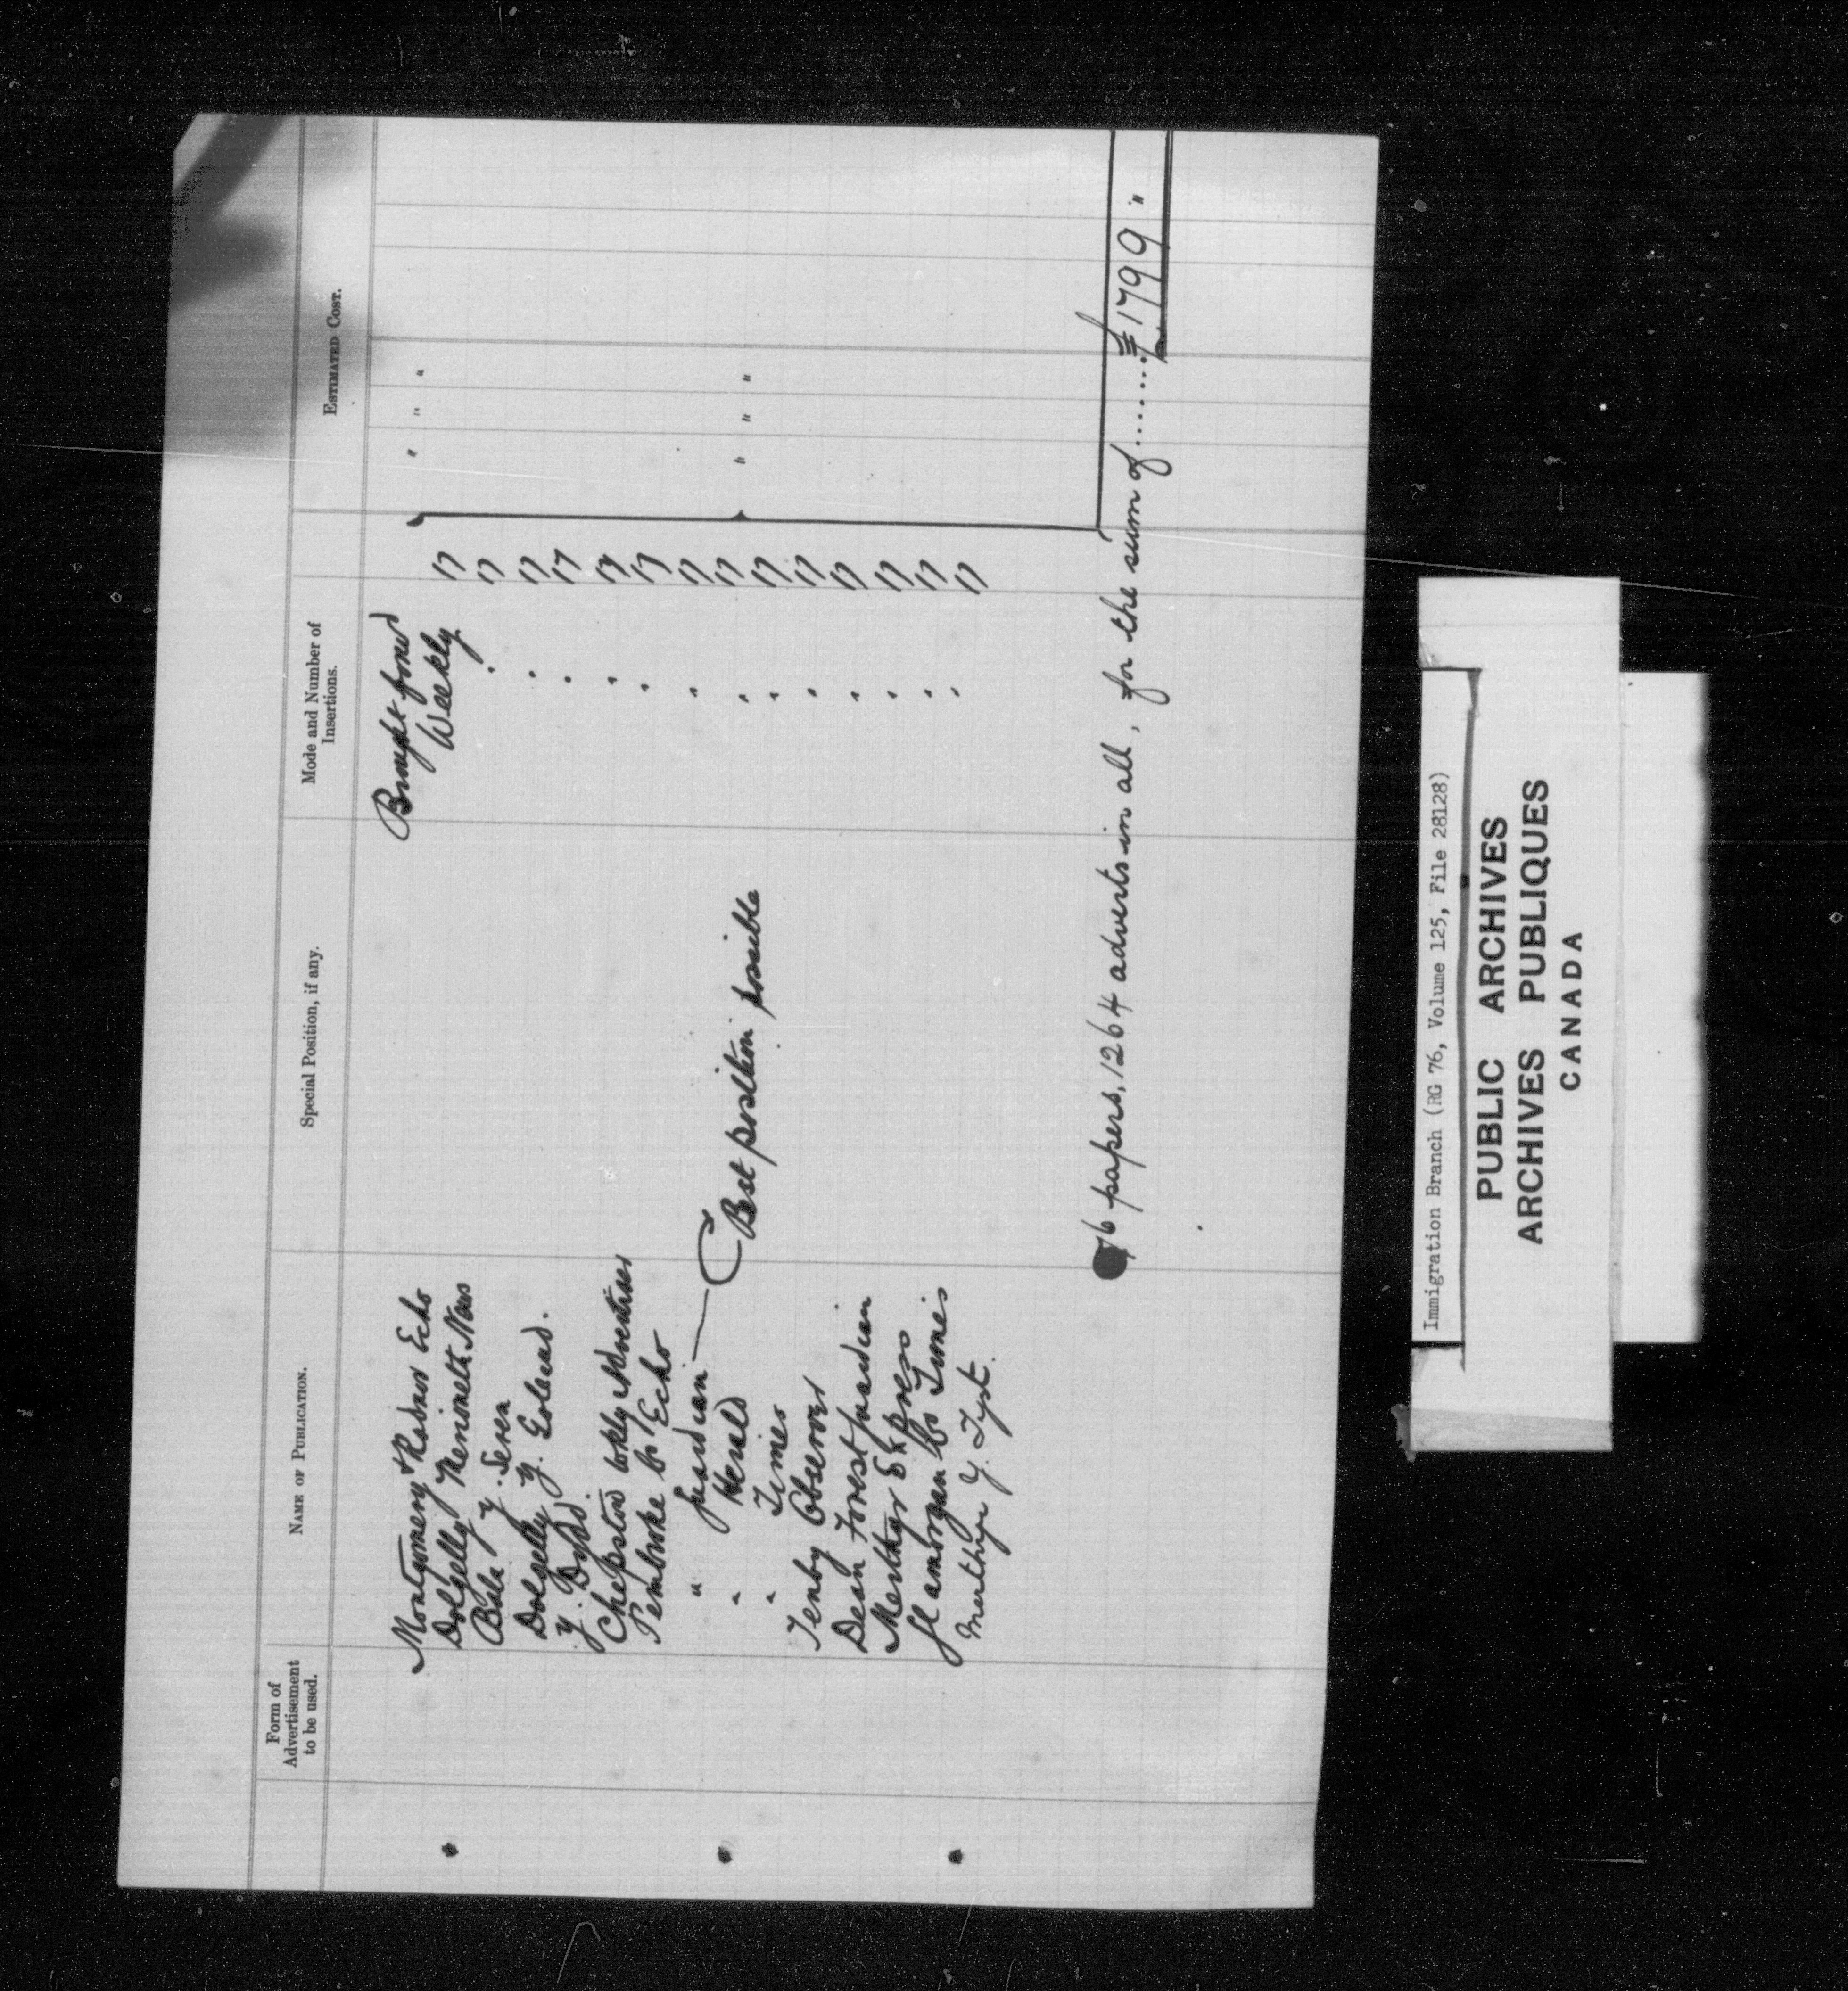 Form of Advertisement to be used.
NAME OF PUBLICATION.
Special Position, if any.
Mode and Number of Insertions.
ESTIMATED COST.
Brought forwd
Montgomery & Radnor Echo Weekly 17 " " "
Dolgelly Merioneth News " 17
Bala Y. Seren " 17
Dolgelly Y. Goleuad. " 17
Y. Dydd. " 17
Chepstow Wkly Advertiser " 17
Pembroke Co Echo " 17
" Guardian " 17
" Herald Best position possible " 17 " " "
" Times " 17
Tenby Observer " 17
Dean Forest Guardian " 17
Merthyr Express " 17
Glamorgan Co Times " 17
Merthyr Y. Tyst.
76 papers, 1264 adverts in all, for the sum of ........ £1799 "
Immigration Branch (RG 76, Volume 125, File 28128)
PUBLIC ARCHIVES
ARCHIVES PUBLIQUES
CANADA